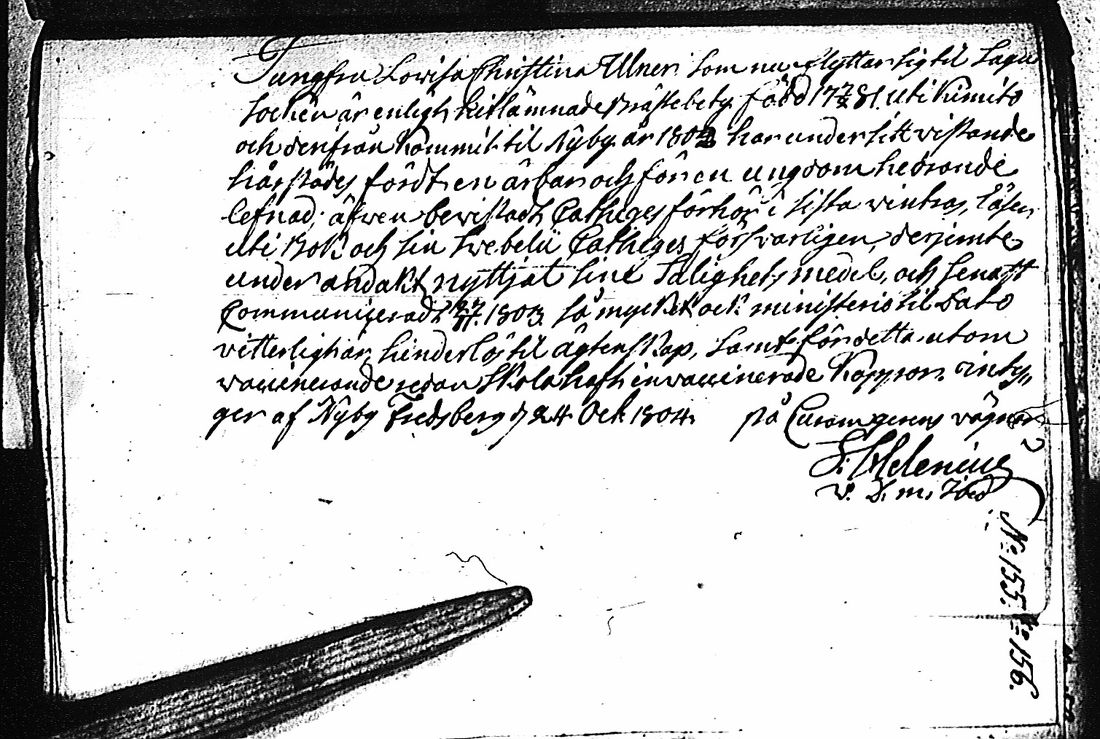 Jungfru Lovisa Christina Ulner som nu flyttar sig til Sagu
Sochen är enligh hitlämnade Prästebetyg född 17 7/2 81. uti Kimito
och derifrån kommit til Nyby år 1802 har under sitt vistande
härstädes fördt en ärbar och för en ungdom hedrande
lefnad; äfven bevistadt Catheges förhör i sista vintras, läser
uti Bok och sin Svebelii Catheges försvarligen, derjemte
under andakt nyttjat sine Salighets medel, och senast
Communicerade 27/11 1803, så mycket ock ministerio til Dato
vitterligt är, hinderlös til ägtenskap, samt för detta utom
vaccinerande redan skola haft invaccinerade Koppor. inty-
ger af Nyby Fredsberg d 24 Oct 1804. på Curam gerens vägnar
S: Helenius
v. D. m.
No 155. No 156.